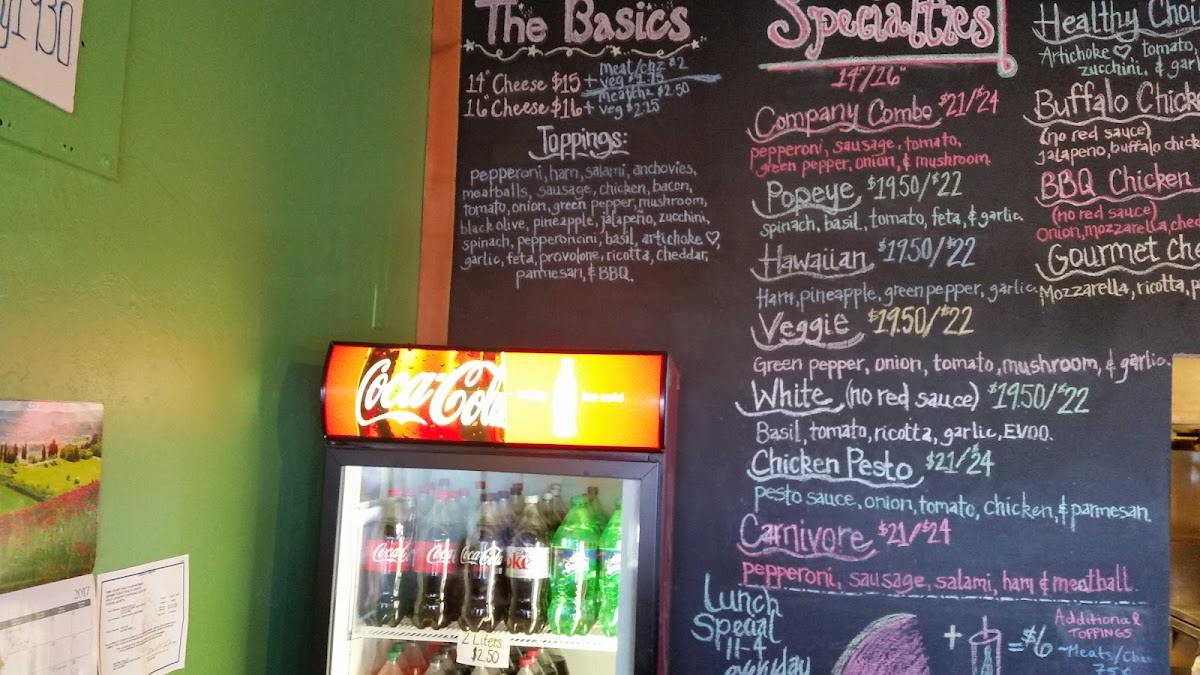 1930
The Basics
14" Cheese $15 + meat/chz $2
veg $1.75
16" Cheese $16 + meat/chz $2.50
veg $2.15
Toppings:
pepperoni, ham, salami, anchovies,
meatballs, sausage, chicken, bacon,
tomato, onion, green pepper, mushroom,
black olive, pineapple, jalapeño, zucchini,
spinach, pepperoncini, basil, artichoke ♡,
garlic, feta, provolone, ricotta, cheddar,
parmesan, & BBQ.
Specialties
14"/16"
Company Combo $21/$24
pepperoni, sausage, tomato,
green pepper, onion, & mushroom.
Popeye $19.50/$22
spinach, basil, tomato, feta, & garlic.
Hawaiian $19.50/$22
Ham, pineapple, green pepper, garlic.
Veggie $19.50/$22
Green pepper, onion, tomato, mushroom, & garlic.
White (no red sauce) $19.50/$22
Basil, tomato, ricotta, garlic, EVOO.
Chicken Pesto $21/$24
pesto sauce, onion, tomato, chicken, & parmesan.
Carnivore $21/$24
pepperoni, sausage, salami, ham & meatball.
Healthy Choi
Artichoke ♡, tomato,
zucchini, & garl
Buffalo Chick
(no red sauce)
jalapeno, buffalo chick
BBQ Chicken
(no red sauce)
Onion, mozzarella, ched
Gourmet Che
Mozzarella, ricotta, p
Lunch
Special
11-4
everyday
+ = $6
Additional
TOPPINGS
~Meats/Ches
75¢
Coca-Cola
ice cold
Coca-Cola
Coca-Cola
Coca-Cola
Coke
2 Liters
$2.50
2017